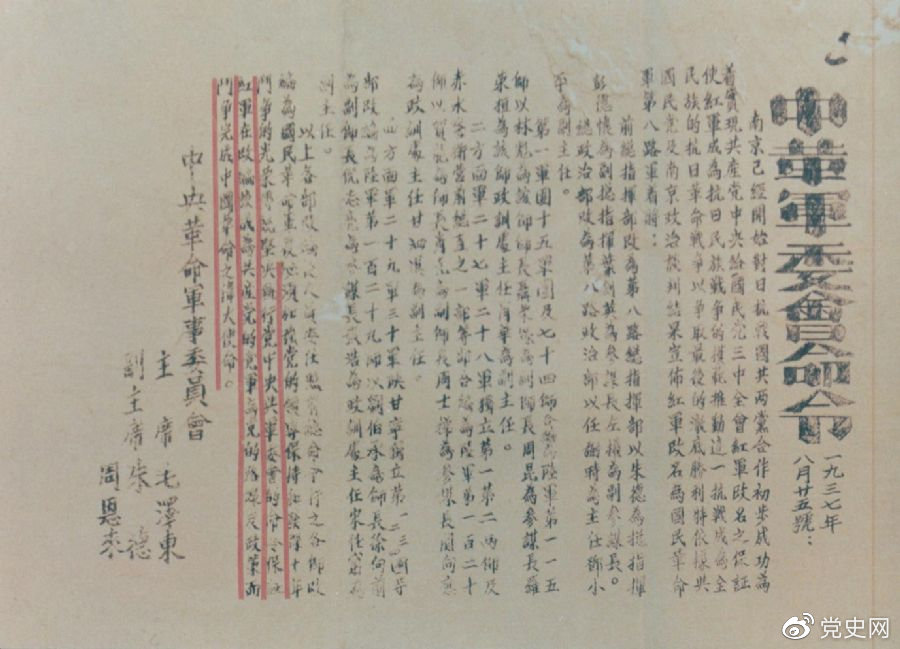 中華軍委會命令
一九三七年
八月廿五號：
南京已經開始對日抗戰國共兩黨合作初步成功為
着實現共產党中央給國民党三中全會紅軍改名之保証
使紅軍成為抗日民族戰争的模範推動這一抗戰成為全
民族的抗日革命戰争以争取最後的澈底勝利特依據與
國民党及南京政治談判結果宣佈紅軍改名為國民革命
軍第八路軍着將：
前總指揮部改為第八路總指揮部以朱德為總指揮
彭德懷為副總指揮葉劍英為參謀長左權為副參謀長。
總政治部改為第八路政治部以任弼時為主任鄧小
平為副主任。
第一軍團十五軍團及七十四師合編為陸軍第一一五
師以林彪為該師師長聶榮臻為副師長周昆為參謀長羅
榮桓為該師政訓處主任肖華為副主任。
二方面軍二十七軍二十八軍獨立第一第二兩師及
赤水警衛營前總直之一部等部合編為陸軍第一百二十
師以賀龍為師長肖克為副師長周士第為參謀長關向應
為政訓處主任甘泗淇為副主任。
四方面軍二十九軍三十軍陝甘寧獨立第一二三四等
部改編為陸軍第一百二十九師以劉伯承為師長徐向前
為副師長倪志亮為參謀長張浩為政訓處主任宋任窮為
副主任。
以上各部改編後人員委任照前總命令行之各部改
編為國民革命軍後必須加強党的領導保持和發揚十年
鬥争的光榮傳統堅決執行党中央與軍委會的命令保証
紅軍在改編後成為共產党的党軍為党的路線及政策而
鬥争完成中國革命之偉大使命。
中央革命軍事委員會
主席毛澤東
副主席朱德
周恩來
党史网